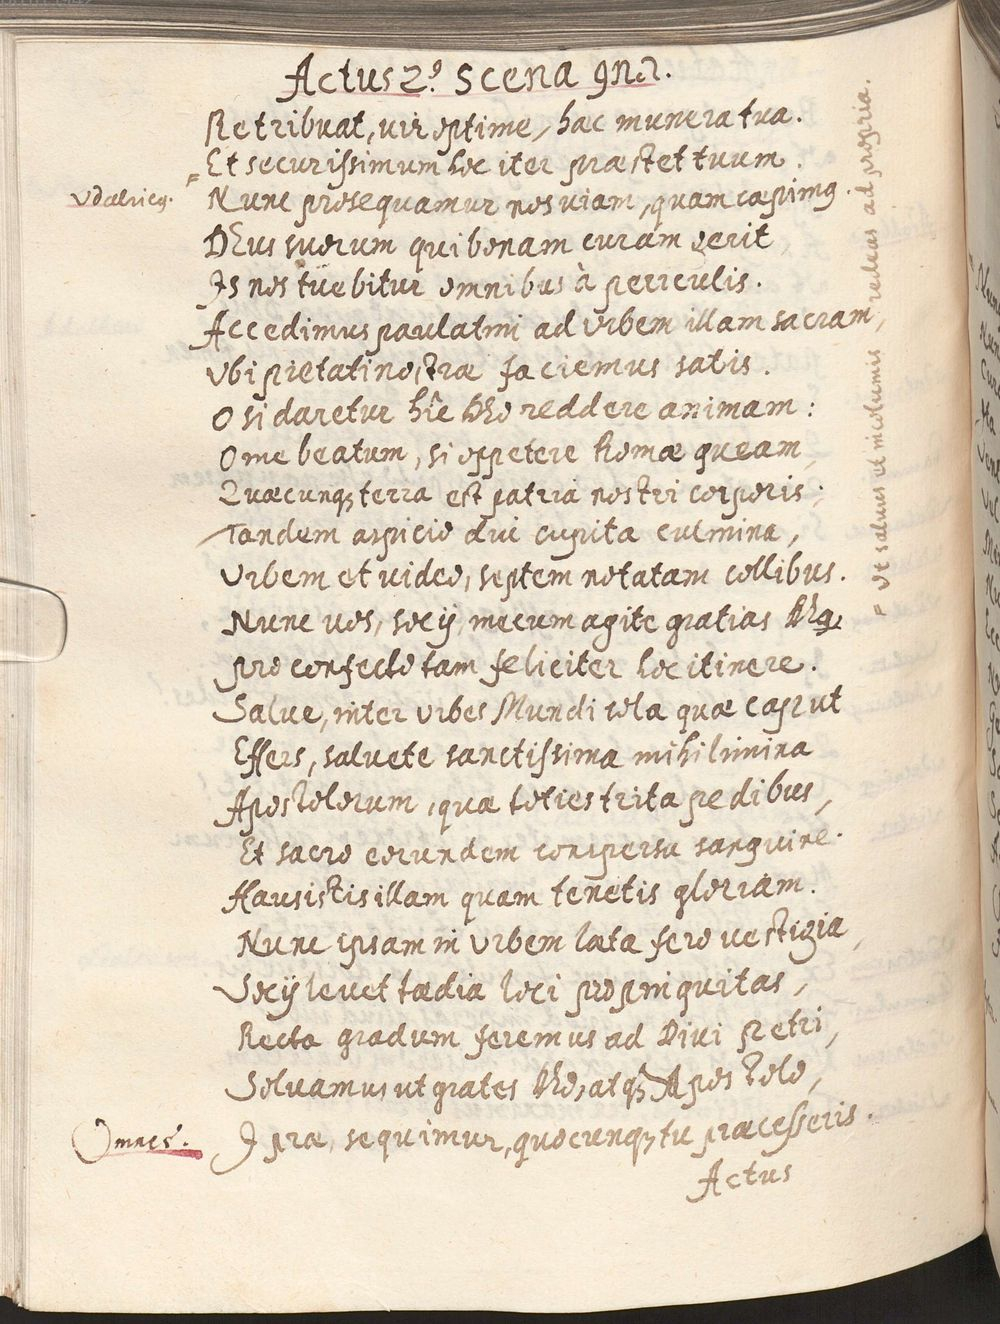 Actus 2⁹. Scena 9ⁿᵈᵃ.
Retribuat, vir optime, hac munera tua.
Et securissimum hoc iter præstet tuum.
= Vt salvus et incolumis redeas ad propria.
Vdalricꝰ. Nunc prosequamur nos viam, quam capimꝰ.
DEus suorum qui bonam curam gerit
Is nos tuebitur omnibus à perieulis.
Accedimus paulatim ad vrbem illam sacram,
Vbi pietati nostræ faciemus satis.
O si daretur hîc Dño reddere animam:
O me beatum, si oppetere Romæ queam,
Quæcunqꝫ terra est patria nostri corporis.
Tandem aspicio diu cupita culmina,
Vrbem et video, septem notatam collibus.
Nunc vos, socij, mecum agite gratias
pro confecto tam feliciter hoc itinere.
Salve, inter vrbes Mundi sola quæ caput
Effers, salvete sanctissima mihi limina
Apostolorum, quæ toties trita pedibus,
Et sacro eorundem conspersa sanguine.
Hausistis illam quam tenetis gloriam.
Nunc ipsam in vrbem læta fero vestigia,
Socij levet tædia loci propinquitas,
Recta gradum feremus ad Divi Petri,
Solvamus ut grates Dño, atqꝫ Apostolo,
Omnes. I præ, sequimur, quocunqꝫ tu præcesseris.
Actus